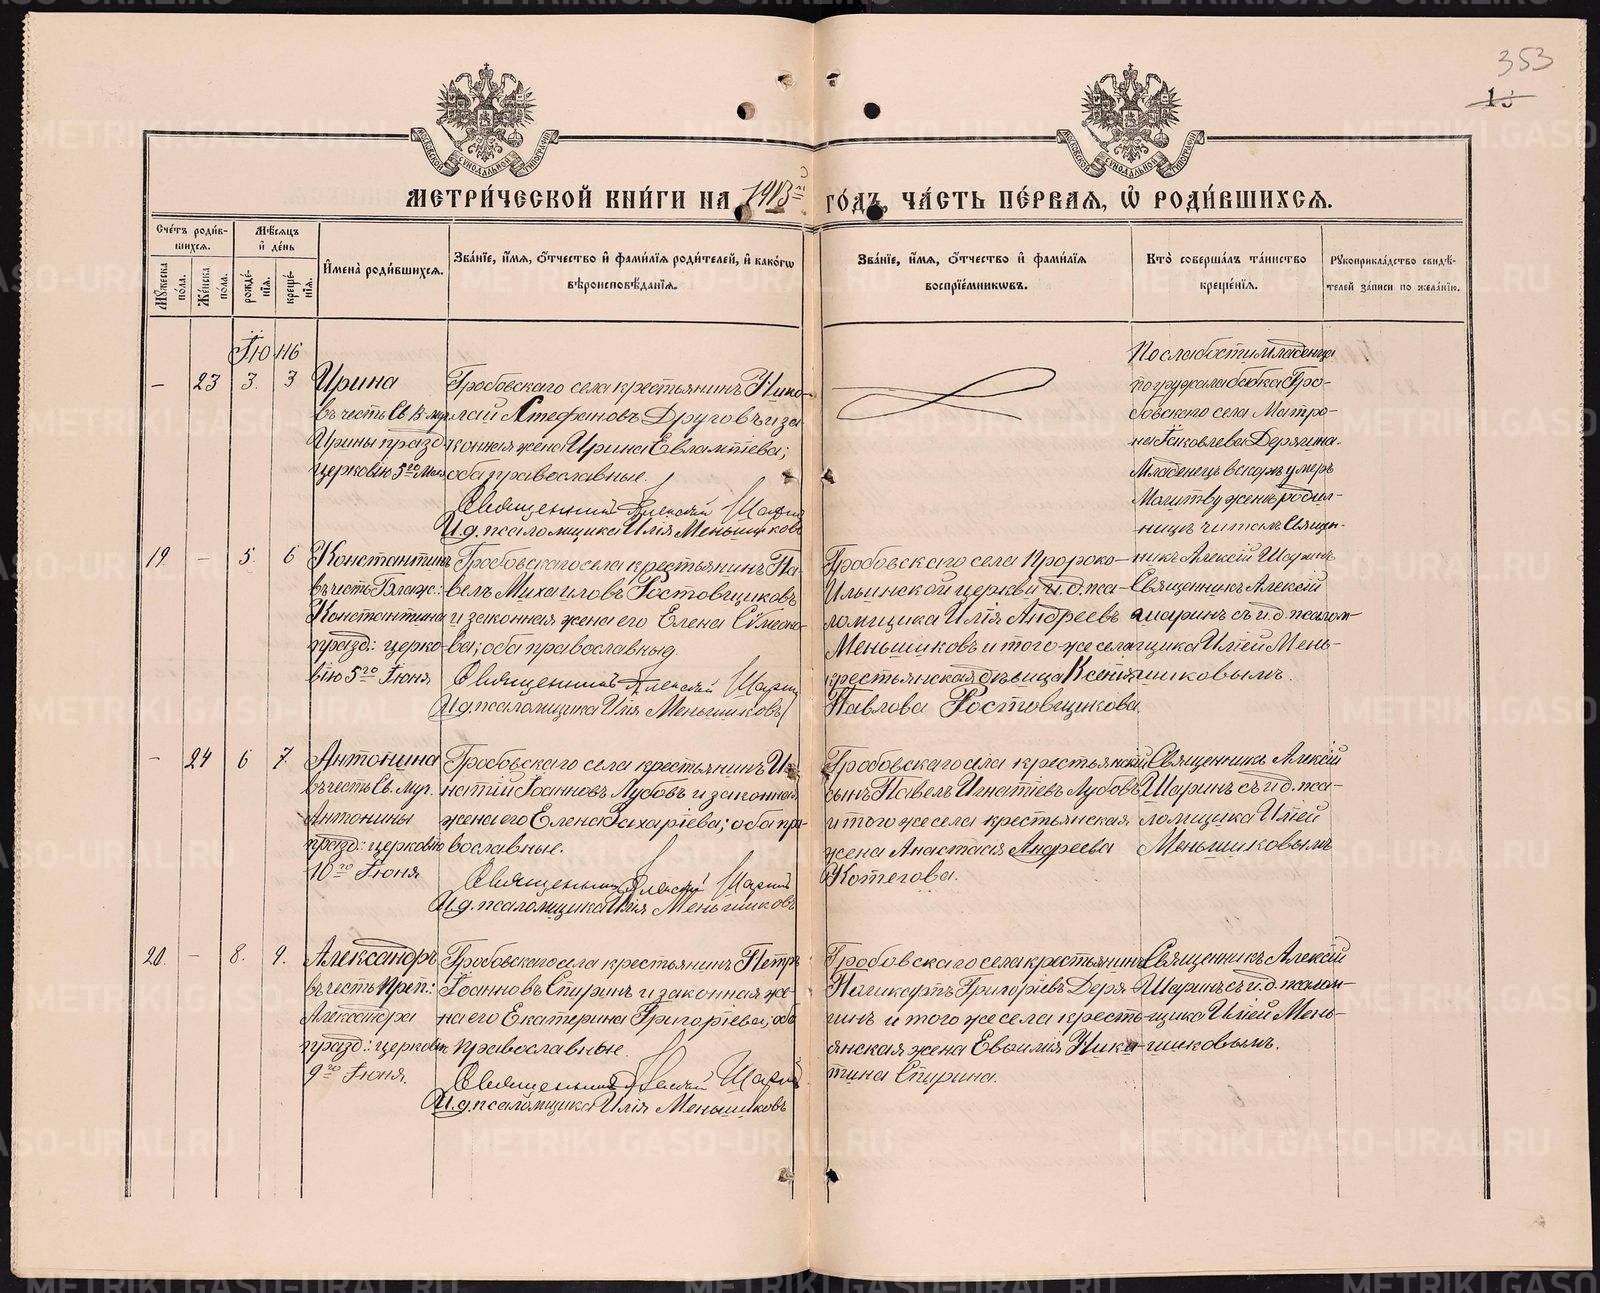 353
15
МЕТРИ́ЧЕСКОЙ КНИ́ГИ НА 1913 ГО́ДЪ, ЧА́СТЬ ПЕ́РВАЯ, Ѡ РОДИ́ВШИХСЯ.
Сче́тъ роди́в-
шихся.
Му́жеска по́ла.
Же́нска по́ла.
Мѣ́сяцъ
и де́нь
рожде́-
нія.
креще́-
нія.
Имена̀ роди́вшихся.
Зва́ніе, и́мя, о́тчество и фами́лія роди́телей, и како́гѡ
вѣроисповѣ́данія.
Зва́ніе, и́мя, о́тчество и фами́лія
воспріе́мниковъ.
Кто̀ соверша́лъ та́инство
креще́нія.
Рукоприкла́дство свидѣ́-
телей за́писи по жела́нію.
Іюнь
— 23 3. 3
Ирина
въ честь Св. В-муч.
Ирины празд.
церковію 5го Мая
Гробовскаго села крестьянинъ Нико-
лай Стефановъ Друговъ и за-
конная жена Ирина Евлампіева;
оба православные.
Священникъ Алексій Шаринъ
И.д. псаломщика Илія Меньшиковъ
По слабости младенца
погружала бабка Гро-
бовскаго села Матро-
на Іаковлева Дерягина.
Младенецъ вскорѣ умеръ
Молитву женѣ родил-
ницѣ читалъ Священ-
никъ Алексій Шаринъ
19 — 5. 6
Константинъ
въ честь Благ. Кн.
Константина
празд.: церко-
вію 5го Іюня
Гробовскаго села крестьянинъ Па-
велъ Михаиловъ Ростовщиковъ
и законная жена его Елена Сѵмеоно-
ва; оба православные.
Священникъ Алексій Шаринъ
И.д. псаломщика Илія Меньшиковъ
Гробовскаго села Пророко-
Ильинской церкви и.д. пса-
ломщика Илія Андреевъ
Меньшиковъ и того же села
крестьянская дѣвица Ксенія
Павлова Ростовщикова.
Священникъ Алексій
Шаринъ съ и.д. псалом-
щика Иліей Мень-
шиковымъ.
— 24 6 7
Антонина
въ честь Св. муч.
Антонины
празд.: церковію
10го Іюня
Гробовскаго села крестьянинъ Иг-
натій Іоанновъ Лубовъ и законная
жена его Елена Захаріева; оба пра-
вославные.
Священникъ Алексій Шаринъ
И.д. псаломщика Илія Меньшиковъ
Гробовскаго села крестьянскій
сынъ Павелъ Игнатіевъ Лубовъ
и того же села крестьянская
жена Анастасія Андреева
Котегова.
Священникъ Алексій
Шаринъ съ и.д. пса-
ломщика Иліей
Меньшиковымъ
20. — 8. 9.
Александръ
въ честь Преп.:
Александра
празд.: церковію
9го Іюня.
Гробовскаго села крестьянинъ Петръ
Іоанновъ Спиринъ и законная же-
на его Екатерина Григоріева; оба
православные.
Священникъ Алексій Шаринъ
И.д. псаломщика Илія Меньшиковъ
Гробовскаго села крестьянинъ
Поликарпъ Григоріевъ Деря-
гинъ и того же села кресть-
янская жена Евфимія Ники-
тина Спирина.
Священникъ Алексій
Шаринъ съ и.д. псалом-
щика Иліей Мень-
шиковымъ.
METRIKI.GASO-URAL.RU